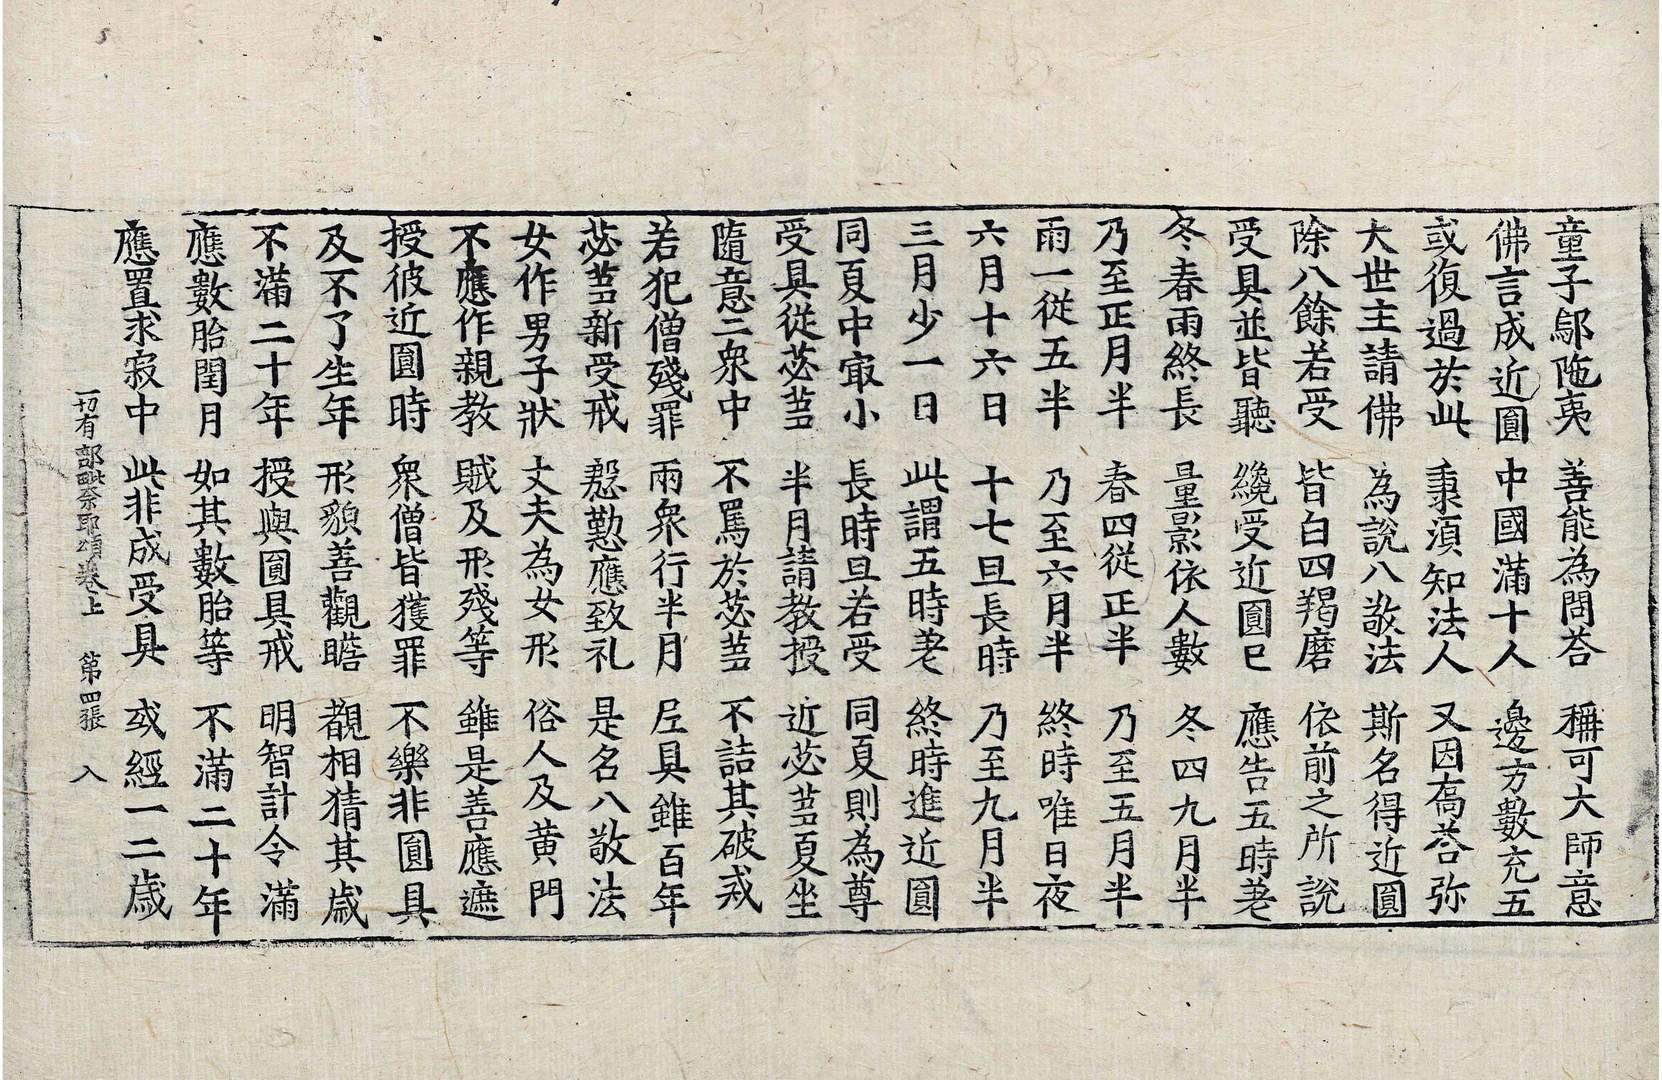 童子鄔陁夷 善能為問荅 稱可大師意
佛言成近圓 中國滿十人 邊方數充五
或復過於此 秉湏知法人 又因髙荅弥
大世主請佛 為說八敬法 斯名得近圓
除八餘若受 皆白四羯磨 依前之所說
受具並皆聽 纔受近圓已 應告五時差
冬春雨終長 量影依人數 冬四九月半
乃至正月半 春四從正半 乃至五月半
雨一從五半 乃至六月半 終時唯日夜
六月十六日 十七旦長時 乃至九月半
三月少一日 此謂五時差 終時進近圓
同夏中㝡小 長時旦若受 同夏則為尊
受具從苾蒭 半月請教授 近苾蒭夏坐
隨意二衆中 不罵於苾蒭 不詰其破戒
若犯僧殘罪 兩衆行半月 圧具雖百年
苾蒭新受戒 慇懃應致礼 是名八敬法
女作男子狀 丈夫為女形 俗人及黄門
不應作親教 賊及形殘等 雖是善應遮
授彼近圓時 衆僧皆獲罪 不樂非圓具
及不了生年 形貌善觀瞻 覩相猜其歲
不滿二十年 授與圓具戒 明智計令滿
應數胎閏月 如其數胎等 不滿二十年
應置求寂中 此非成受具 或經一二歲
一切有部毗奈耶頌卷上 第四張 入